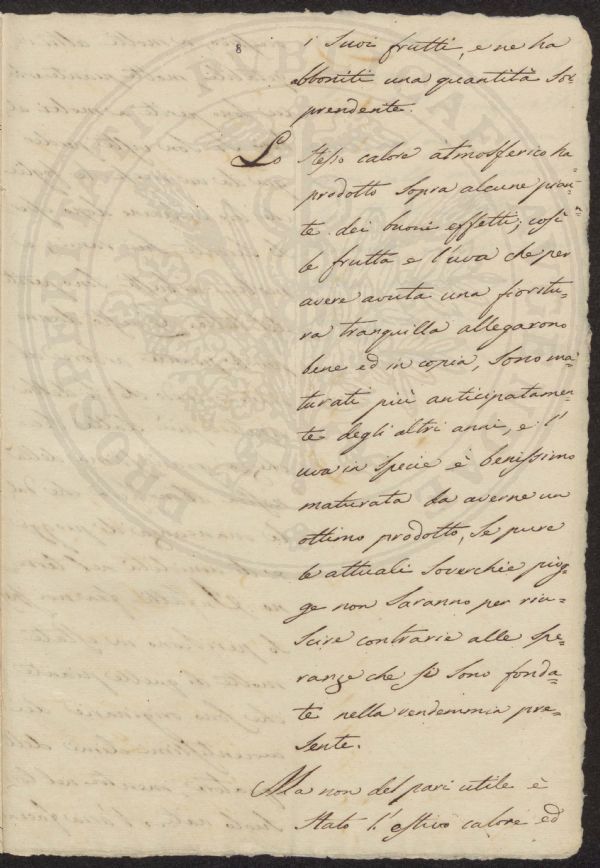 8
i suoi frutti, e ne ha
abboniti una quantità sor
prendente.
Lo stesso calore atmosferico ha
prodotto sopra alcune pian=
te dei buoni effetti; così
le frutta e l'uva che per
avere avuta una fioritu=
ra tranquilla allegarono
bene ed in copia, sono ma=
turati più anticipatamen=
te degli altri anni, e l'
uva in specie è benissimo
maturata da averne un
ottimo prodotto, se pure
le attuali soverchie piog=
ge non saranno per riu=
scire contrarie alle spe=
ranze che si sono fonda=
te nella vendemmia pre=
sente.
Ma non del pari utile è
stato l'estivo calore ed